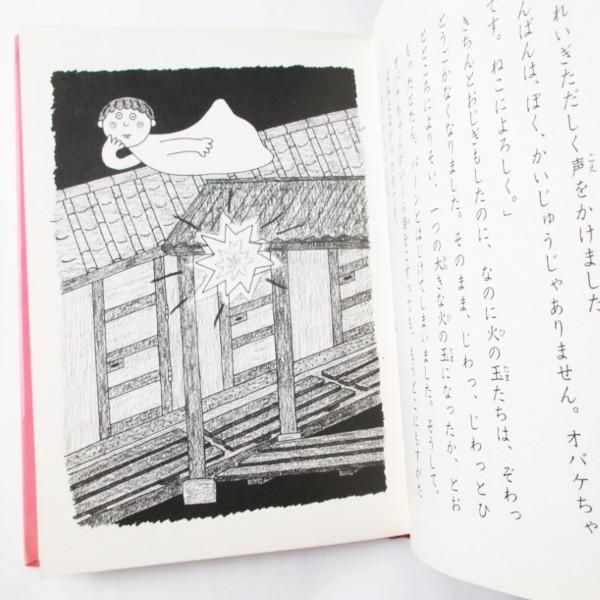 れいぎただしく声をかけました
んばんは、ぼく、かいじゅうじゃありません。オバケちゃ
です。ねこによろしく。」
きちんとおじぎもしたのに、なのに火の玉たちは、ぞわっ
どうごかなくなりました。そのまま、じわっ、じわっとひ
とところによりそい、一つの大きな火の玉になったか、とお
もったとたん、パーンとはじけてしまいました。そうして、